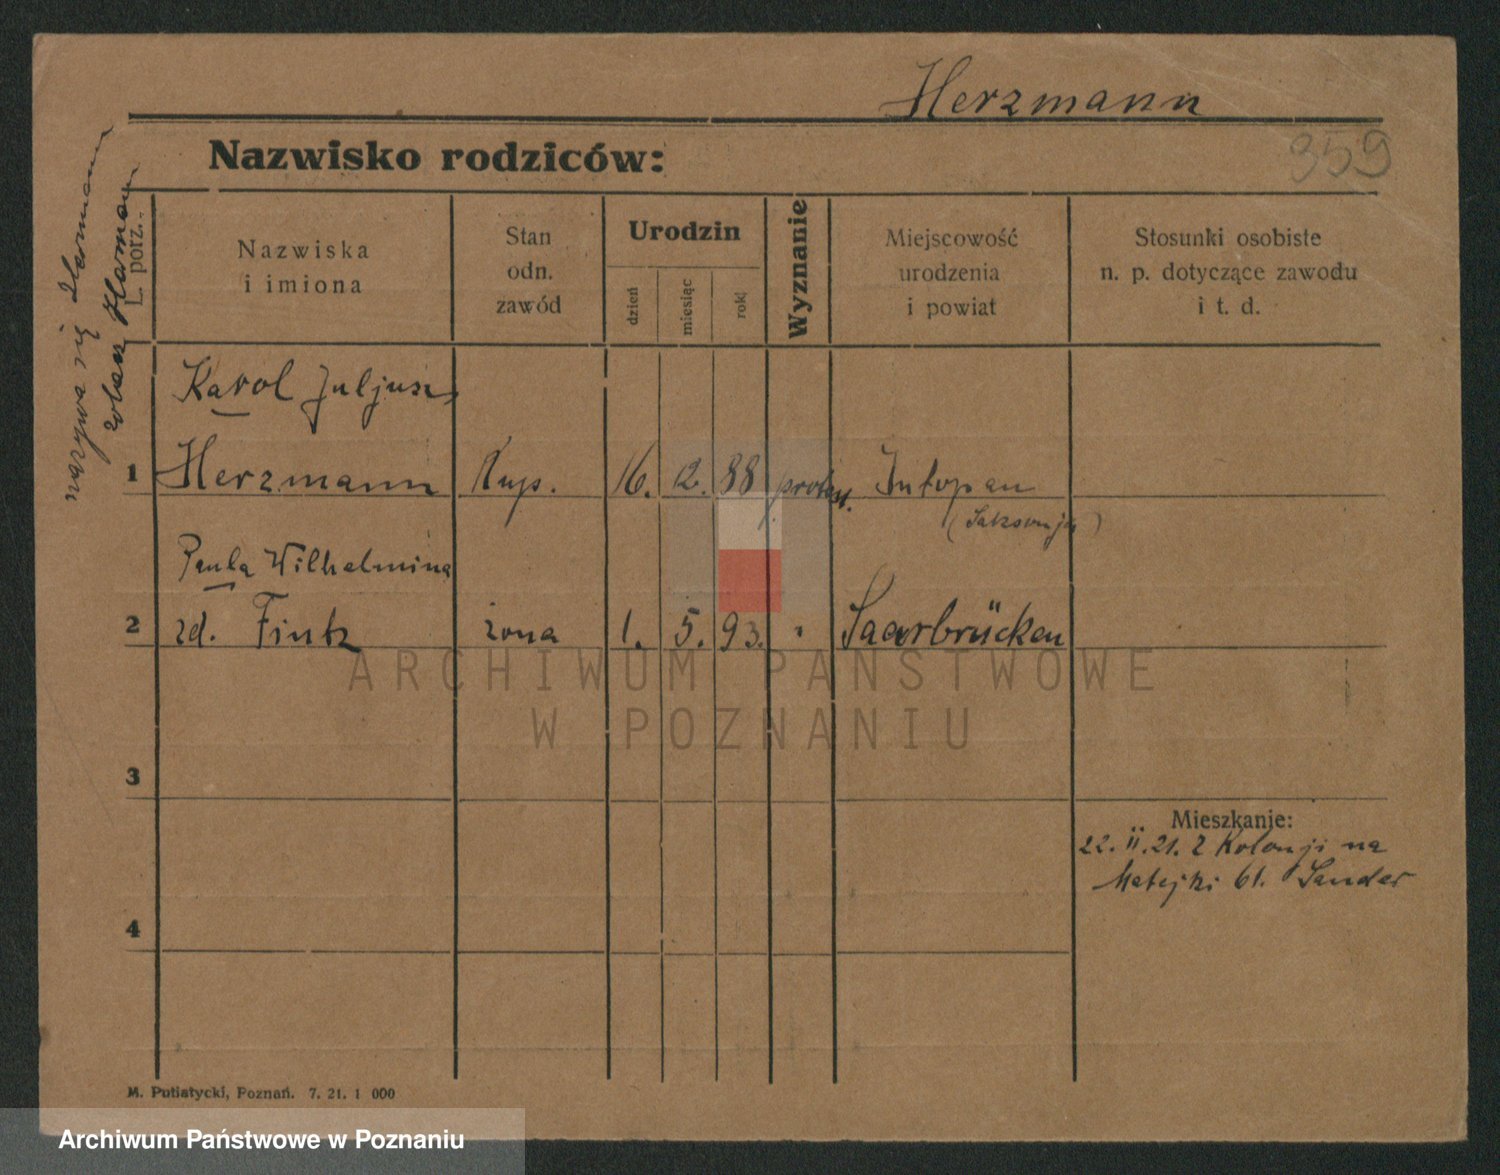 Herzmann
359
Nazwisko rodziców:
nazywa się Harmann
zobacz Harmann
L. porz.
Nazwiska
i imiona
Stan
odn.
zawód
Urodzin
dzień
miesiąc
rok
Wyznanie
Miejscowość
urodzenia
i powiat
Stosunki osobiste
n. p. dotyczące zawodu
i t. d.
Karol Juljusz
1 Herzmann Kup. 16. 2. 88 protest.
(Saksonja)
Paula Wilhelmina
2 zd. Fintz żona 1. 5. 93. " Saarbrücken
ARCHIWUM PAŃSTWOWE
W POZNANIU
3
Mieszkanie:
22. II. 21. z Kolonji na
Matejki 61. Sander
4
M. Putiatycki, Poznań. 7. 21. 1 000
Archiwum Państwowe w Poznaniu